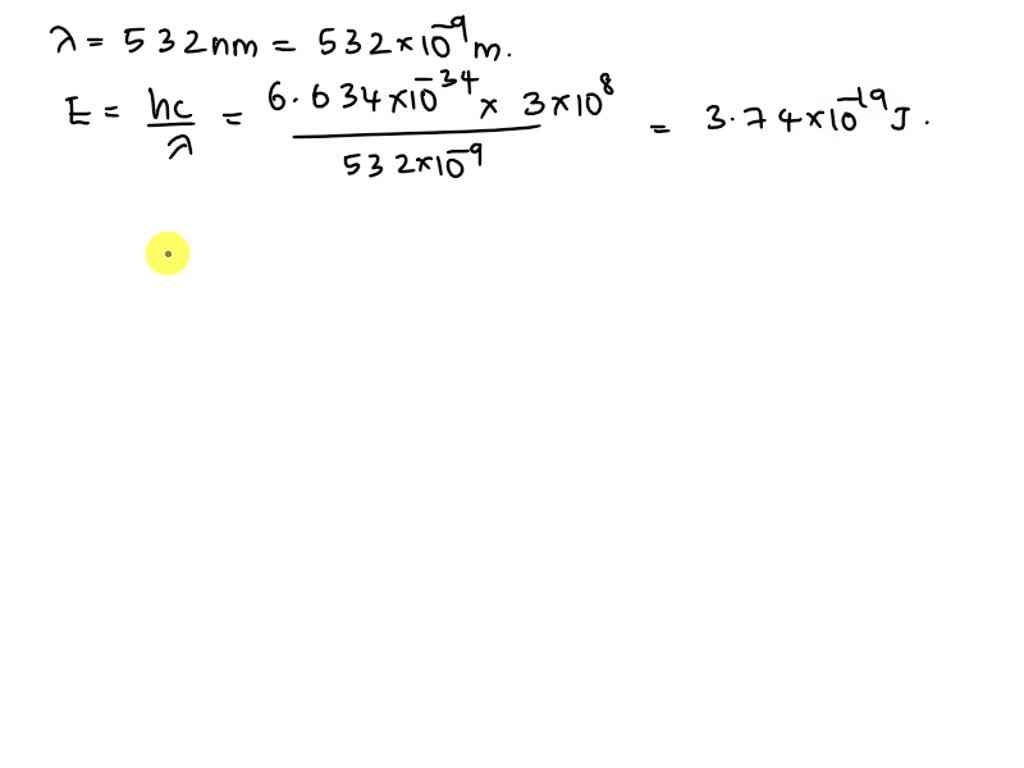 λ = 532nm = 532×10⁻⁹ m.
E = hc/λ = 6.634×10⁻³⁴ × 3×10⁸ / 532×10⁻⁹ = 3.74×10⁻¹⁹ J.